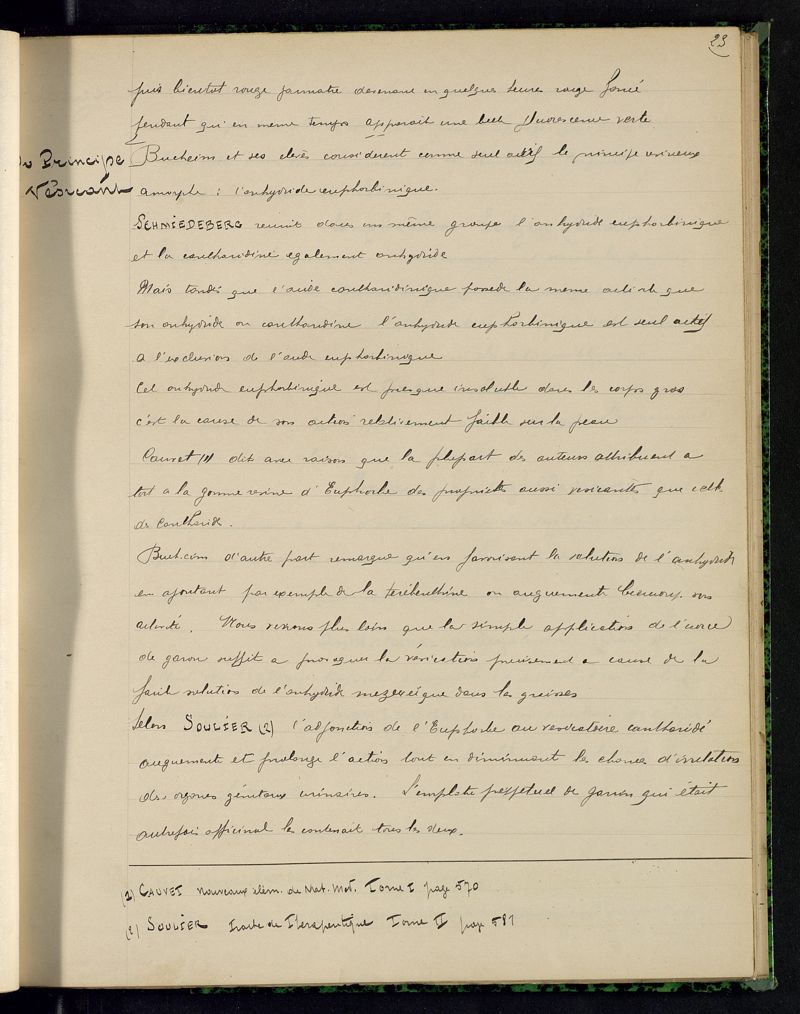 23
puis bientot rouge jaunatre devenant en quelques heures rouge foncé
pendant qu'en meme temps apparait une belle fluorescence verte
Du Principe
Vésicant
Bucheim et ses elevès considerent comme seul actif le principe resineux
amorphe : l'anhydride euphorbinique.
SCHMIEDEBERG reunit dans un même groupe l'anhydride euphorbinique
et la cantharidine egalement anhydride
Mais tandis que l'acide cantharidinique possede la meme activité que
son anhydride ou cantharidine l'anhydride euphorbinique est seul actif
a l'exclusion de l'acide euphorbinique
Cet anhydride euphorbinique est presque insoluble dans les corps gras
c'est la cause de son action relativement faible sur la peau
Cauvet (1) dit avec raison que la plupart des auteurs attribuent a
tort a la gomme resine d'Euphorbe des proprietés aussi vesicantes que celle
de cantharide.
Bucheim d'autre part remarque qu'en favorisant la solution de l'anhydride
en ajoutant par exemple de la térébenthine on augmente beaucoup son
activité. Nous verrons plus loin que la simple application de l'ecorce
de garou suffit a provoquer la vésication precisement a cause de la
facile solution de l'anhydride mezereïque dans les graisses
Selon SOULIER (2) l'adjonction de l'Euphorbe au vesicatoire cantharidé
augmente et prolonge l'action tout en diminuant les chances d'irritation
des organes génitaux urinaires. L'emplatre perpetuel de Janin qui était
autrefois officinal les contenait tous les deux.
(1) CAUVET nouveaux elem. de Mat. Med. Tome I page 570
(2) SOULIER Traité de Therapeutique Tome II page 581